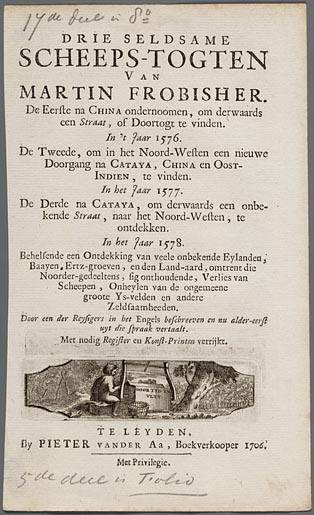 17de deel in 8o
DRIE SELDSAME
SCHEEPS-TOGTEN
VAN
MARTIN FROBISHER.
De Eerste na CHINA ondernoomen, om derwaards
een Straat, of Doortogt te vinden.
In 't Jaar 1576.
De Tweede, om in het Noord-Westen een nieuwe
Doorgang na CATAYA, CHINA en OOST-
INDIEN, te vinden.
In het Jaar 1577.
De Derde na CATAYA, om derwaards een onbe-
kende Straat, naar het Noord-Westen, te
ontdekken.
In het Jaar 1578.
Behelsende een Ontdekking van veele onbekende Eylanden,
Baayen, Ertz-groeven, en den Land-aard, omtrent die
Noorder-gedeeltens, sig onthoudende, Verlies van
Scheepen, Onheylen van de ongemeene
groote Ys-velden en andere
Zeldsaamheeden.
Door een der Reysigers in het Engels beschreeven en nu alder-eerst
uyt die spraak vertaalt.
Met nodig Register en Konst-Printen verrijkt.
DOOR TYD EN
VLYT
TE LEYDEN,
By PIETER VANDER Aa, Boekverkooper 1706.
Met Privilegie.
5de deel in Folio